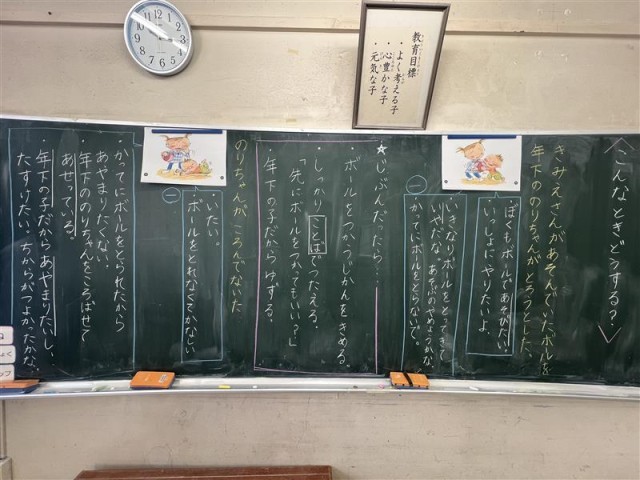 教育目標
・よく考える子
・心豊かな子
・元気な子
〈こんなときどうする？〉
きみえさんがあそんでいたボルを
年下ののりちゃんがとろうとした。
・ぼくもボルであそびたい。
いっしょにやりたいよ。
・いきなりボルをとってきて
いやだな。あそぶのやめようかな
かってにボルをとらないで。
★じぶんだったら…
・ボールをつかうじかんをきめる。
・しっかりことばでつたえる。
「先にボールをつかってもいい？」
・年下の子だからゆずる。
のりちゃんが ころんでないた
・いたい。
・ボールをとれなくてかなしい
・かってにボールをとられたから
あやまりたくない。
・年下ののりちゃんをころばせて
あせっている。
・年下の子だからあやまりたいし、
たすけたい。ちからがつよかったかな。